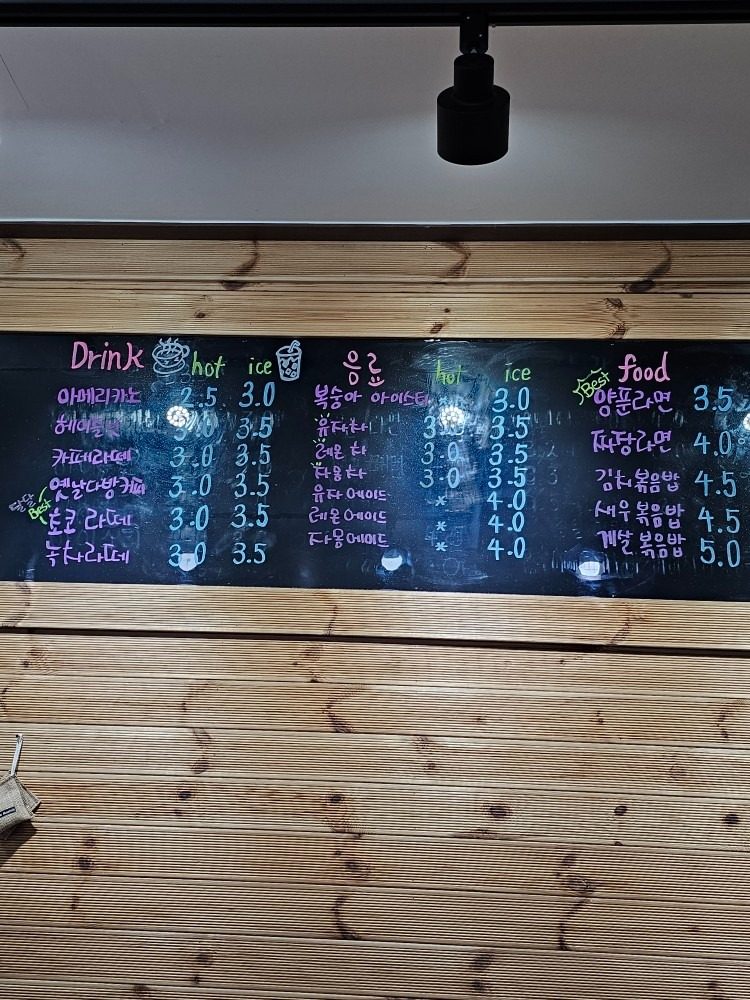 Drink hot ice
아메리카노 2.5 3.0
헤이즐넛 3.0 3.5
카페라떼 3.0 3.5
옛날다방커피 3.0 3.5
달달 Best
초코라떼 3.0 3.5
녹차라떼 3.0 3.5
음료 hot ice
복숭아 아이스티 3.0
유자차 3.0 3.5
레몬차 3.0 3.5
자몽차 3.0 3.5
유자에이드 * 4.0
레몬에이드 * 4.0
자몽에이드 * 4.0
food
Best
양푼라면 3.5
짜장라면 4.0
김치볶음밥 4.5
새우볶음밥 4.5
게살볶음밥 5.0